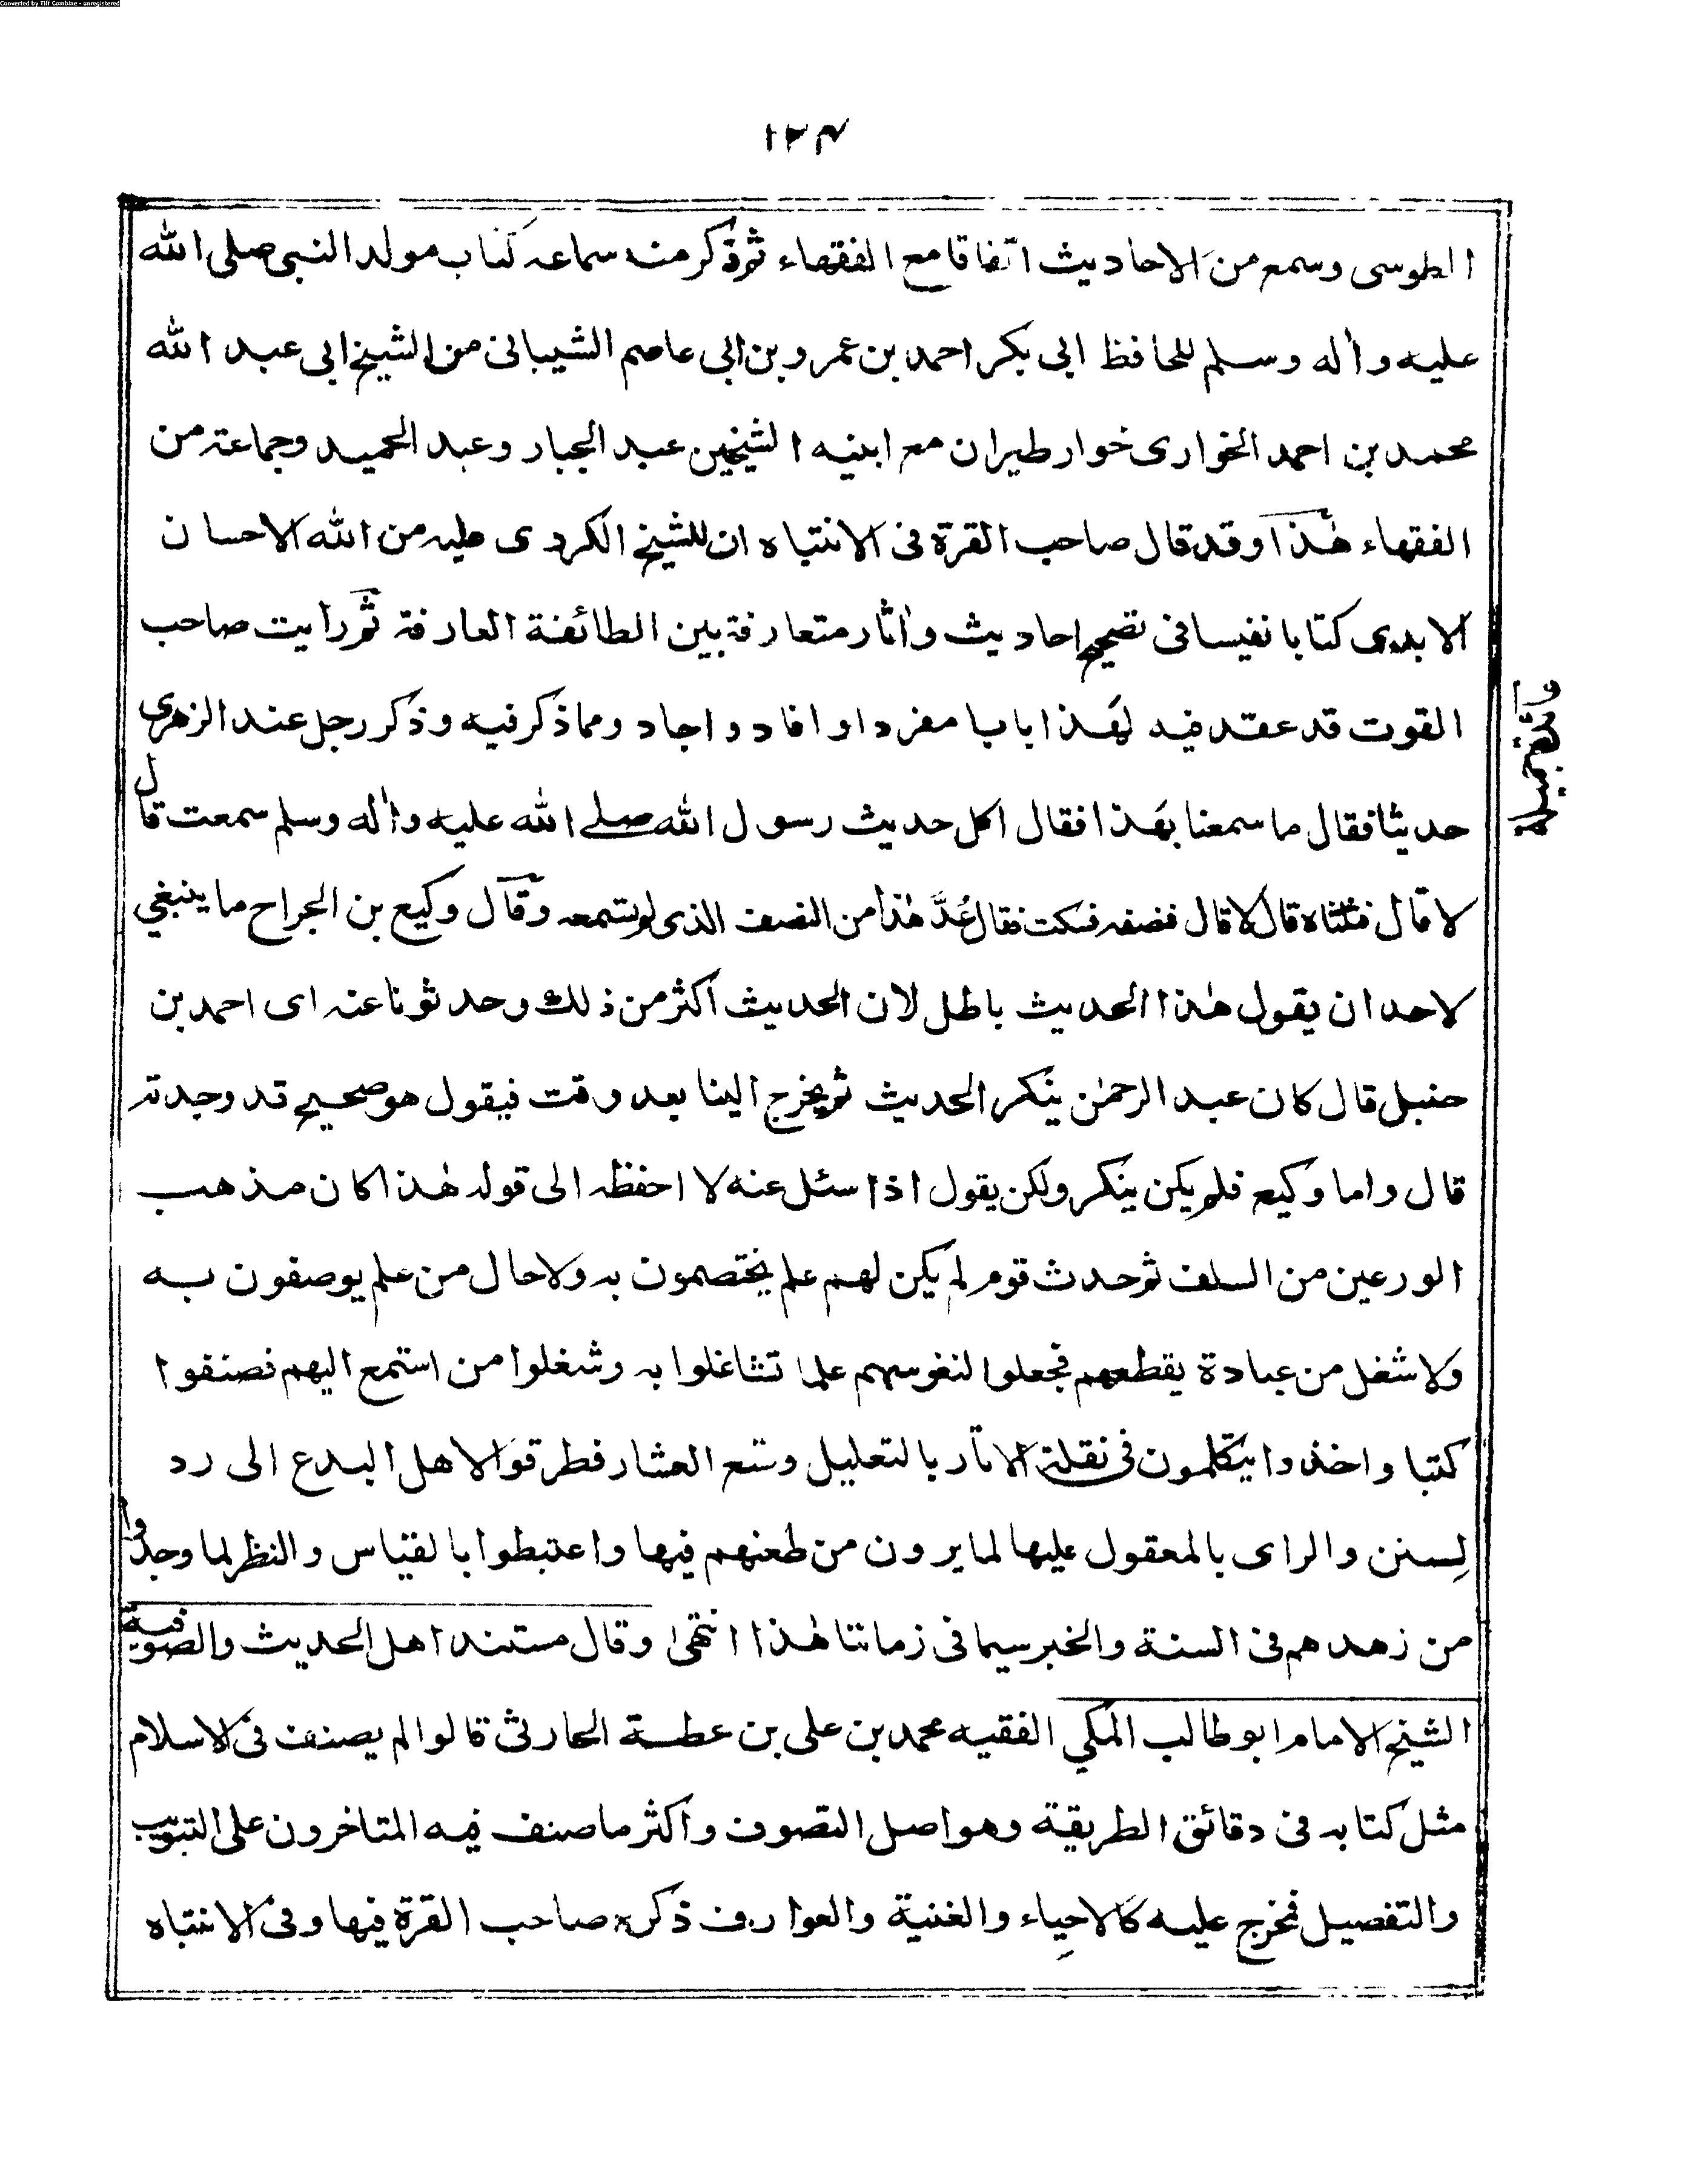 Converted by Tiff Combine - unregistered
۱۲۴
الطوسى وسمع من الاحاديث اتفاقا مع الفقهاء ثم ذكر من سماعه كتاب مولد النبى صلى الله
عليه واٰله وسلم للحافظ ابى بكر احمد بن عمرو بن ابى عاصم الشيبانى من الشيخ ابى عبد الله
محمد بن احمد الخوارى خوار طيران مع ابنيه الشيخين عبد الجبار وعبد الحميد وجماعة من
الفقهاء هٰذا وقد قال صاحب القرة فى الانتباه ان للشيخ الكردى عليه من الله الاحسان
الابدى كتابا نفيسا فى تصحيح احاديث واٰثار متعارفة بين الطائفة العارفة ثم رأيت صاحب
القوت قد عقد فيه لهذا بابا مفردا وافاد واجاد ومما ذكر فيه وذكر رجل عند الزهرى
حديثا فقال ما سمعنا بهذا فقال اكل حديث رسول الله صلے الله عليه واٰله وسلم سمعت قال
لا قال فثلثاه قال لا قال فنصفه فسكت فقال عُدَّ هٰذا من النصف الذى لم تسمعه وقال وكيع بن الجراح ما ينبغي
لاحد ان يقول هٰذا الحديث باطل لان الحديث اكثر من ذلك وحدثونا عنه اى احمد بن
حنبل قال كان عبد الرحمٰن ينكر الحديث ثم يخرج الينا بعد وقت فيقول هو صحيح قد وجدته
قال واما وكيع فلم يكن ينكر ولكن يقول اذا سئل عنه لا احفظه الى قوله هٰذا كان مذهب
الورعين من السلف ثم حدث قوم لم يكن لهم علم يختصمون به ولا حال من علم يوصفون به
ولا شغل من عبادة يقطعهم فجعلوا لنفوسهم علما تشاغلوا به وشغلوا من استمع اليهم فصنفوا
كتبا واخذوا يتكلمون فى نقلة الاثار بالتعليل وتتبع العثار فطرقوا لاهل البدع الى رد
لسنن والراى بالمعقول عليها لما يرون من طعنهم فيها واغتبطوا بالقياس والنظر لما وجدوا
من زهدهم فى السنة والخبر سيما فى زماننا هٰذا انتهىٰ وقال مستند اهل الحديث والصوفية
الشيخ الامام ابو طالب المكي الفقيه محمد بن على بن عطية الحارثى قالوا لم يصنف فى الاسلام
مثل كتابه فى دقائق الطريقة وهو اصل التصوف واكثر ما صنف فيه المتاخرون على التبويب
والتفصيل فمخرج عليه كالاحياء والغنية والعوارف ذكره صاحب القرة فيها وفى الانتباه